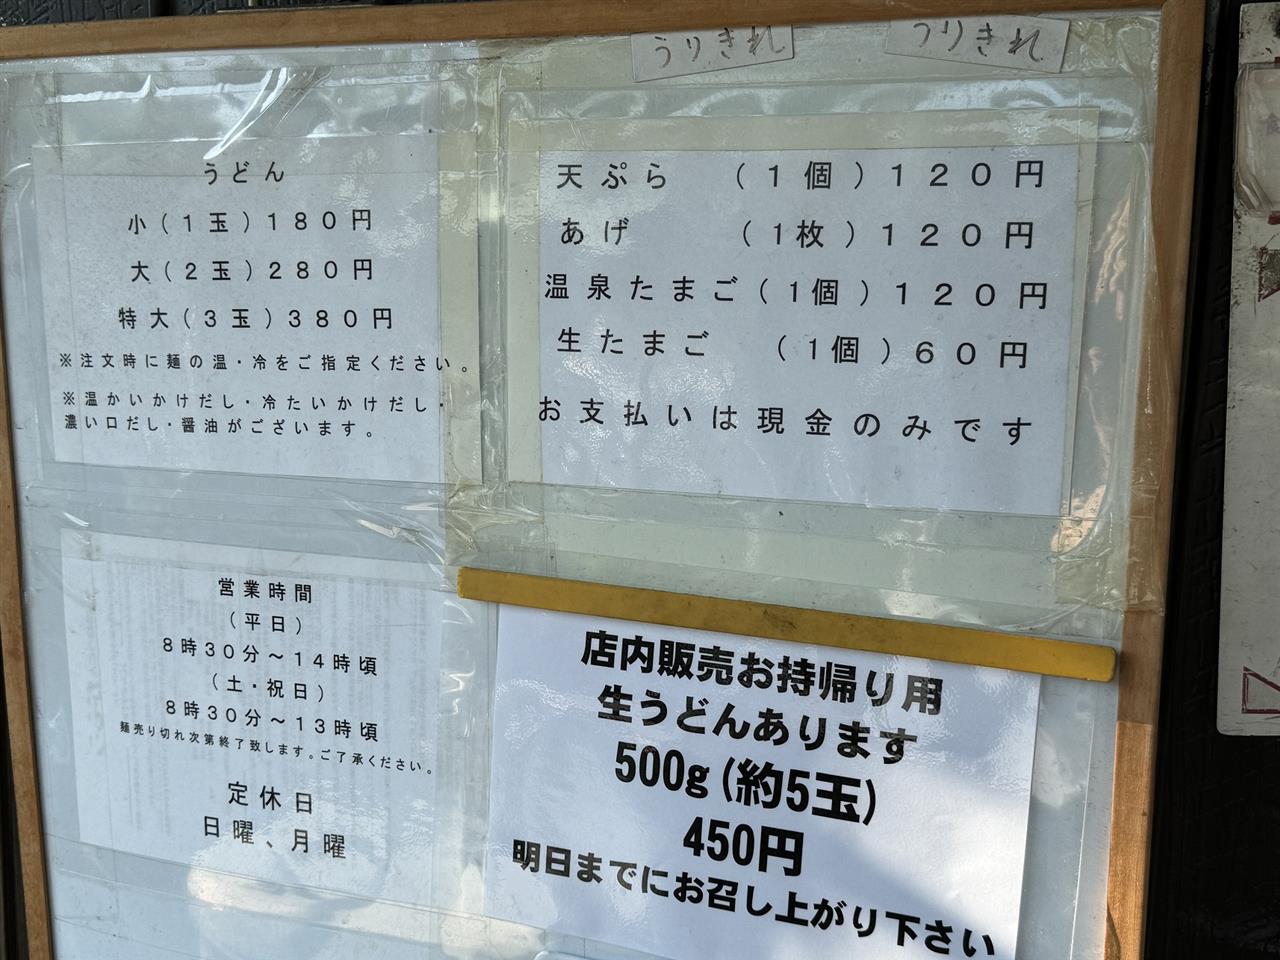 うりきれ
うりきれ
うどん
小(1玉)180円
大(2玉)280円
特大(3玉)380円
※注文時に麺の温・冷をご指定ください。
※温かいかけだし・冷たいかけだし・
濃い口だし・醤油がございます。
天ぷら (1個)120円
あげ (1枚)120円
温泉たまご(1個)120円
生たまご (1個)60円
お支払いは現金のみです
営業時間
(平日)
8時30分～14時頃
(土・祝日)
8時30分～13時頃
麺売り切れ次第終了致します。ご了承ください。
定休日
日曜、月曜
店内販売お持帰り用
生うどんあります
500g(約5玉)
450円
明日までにお召し上がり下さい